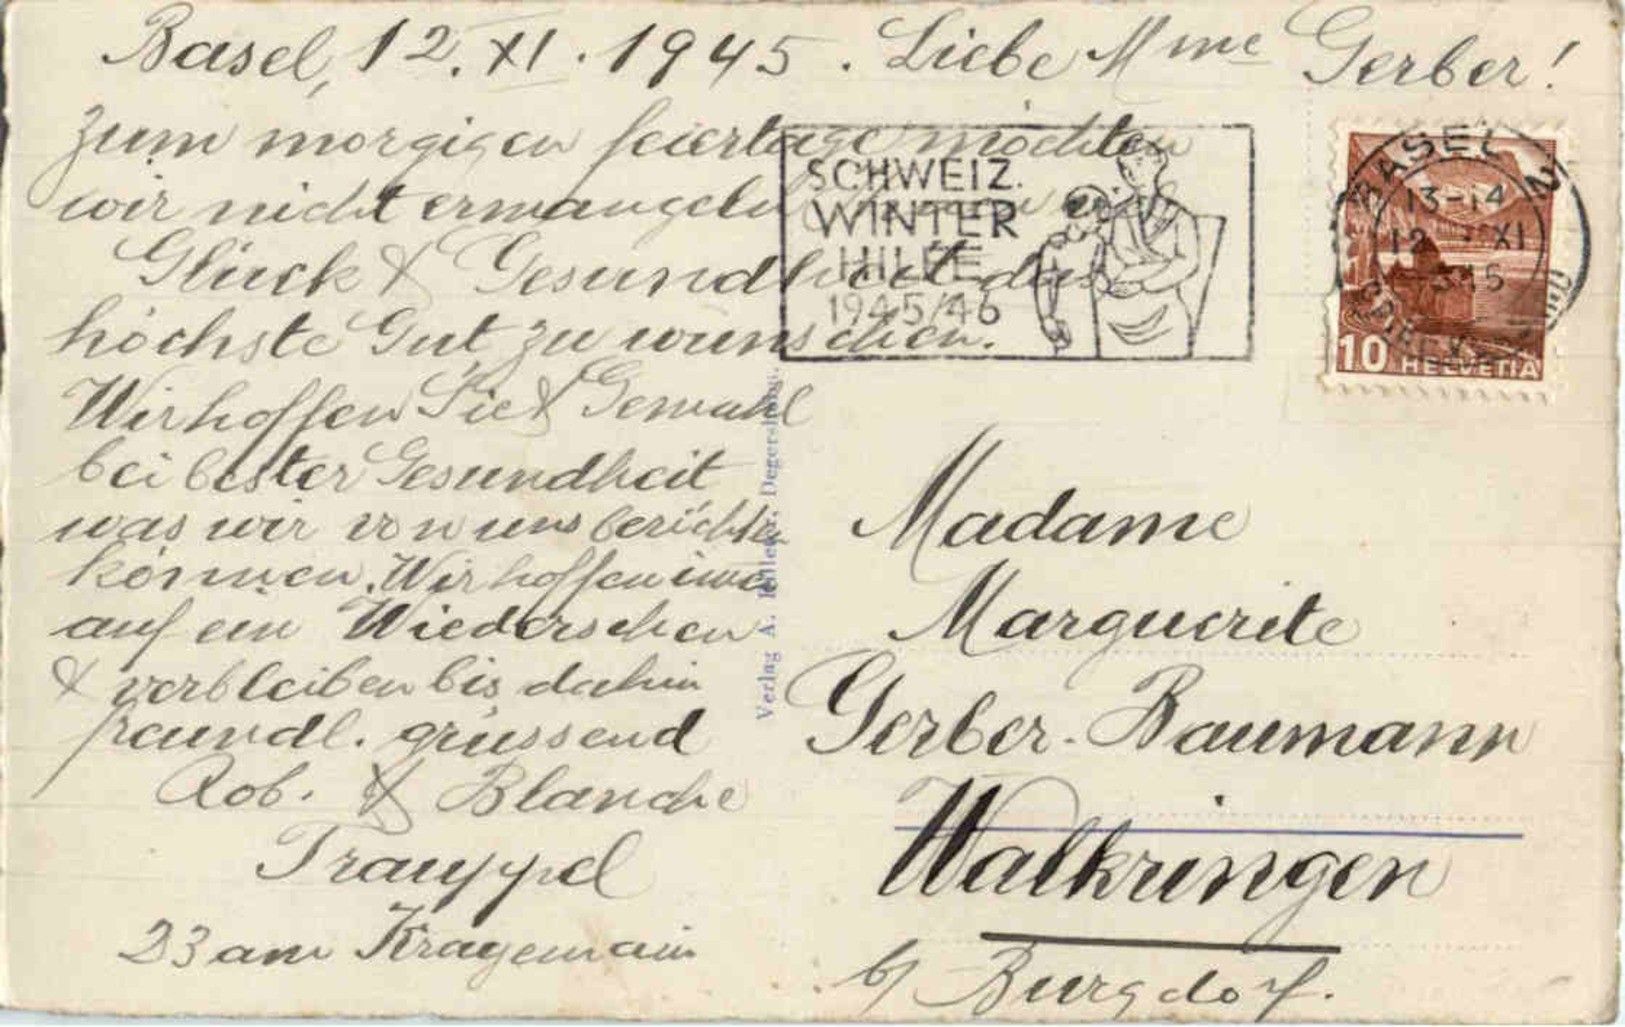 Basel, 12. XI. 1945. Liebe Mme Gerber!
Zum morgigen feiertage möchten
wir nicht ermangeln
Glück & Gesundheit das
höchste Gut zu wünschen.
Wir hoffen Sie & Gemahl
bei bester Gesundheit
was wir von uns berichten
können. Wir hoffen
auf ein Wiedersehen
& verbleiben bis dahin
freundl. grüssend
Rob. & Blanche
Trauppel
23 am Kragenrain
SCHWEIZ.
WINTER
HILFE
1945/46
BASEL 2
13-14
12. XI
45
10 HELVETIA
Verlag A. Degersheim.
Madame
Marguerite
Gerber-Baumann
Walkringen
b/ Burgdorf.